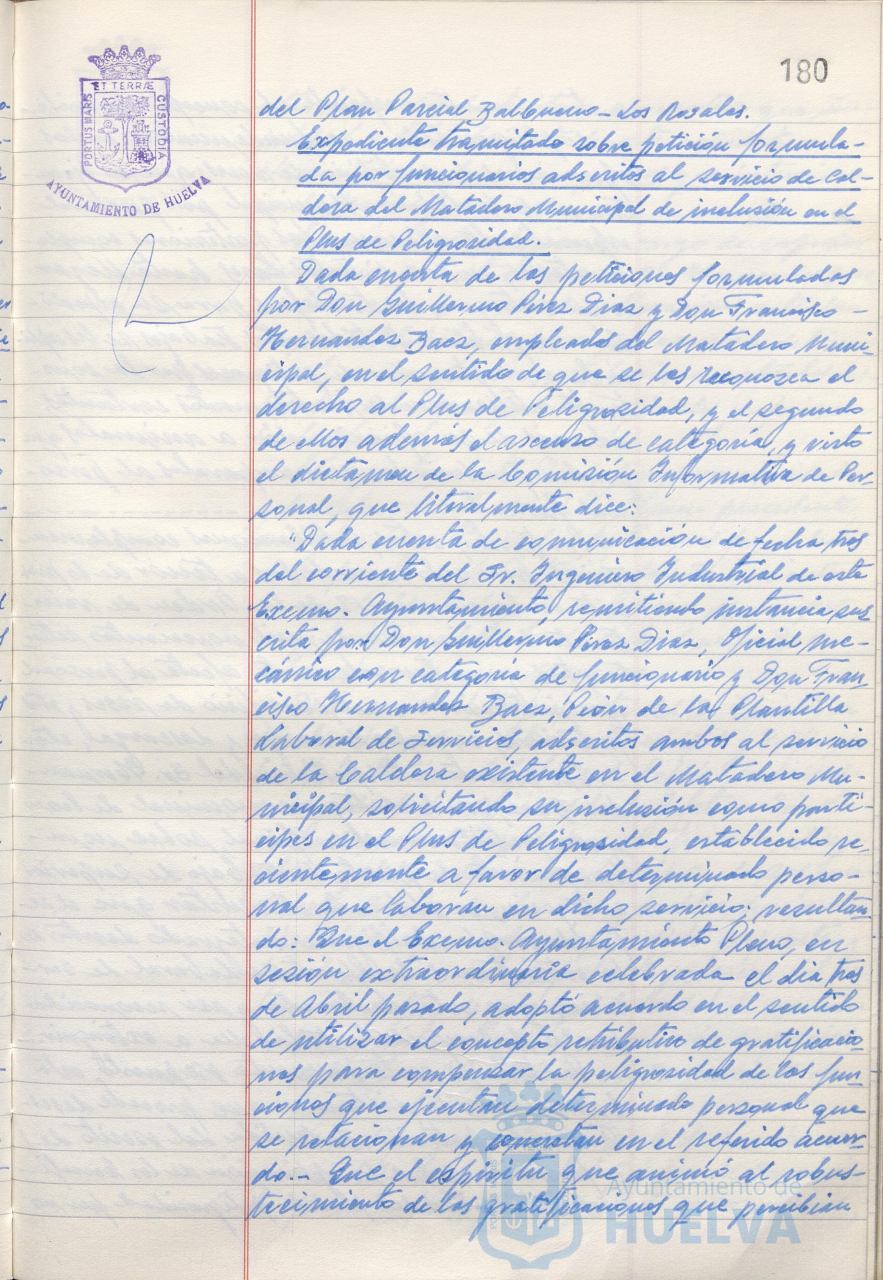 180
PORTUS MARIS ET TERRÆ CUSTODIA
AYUNTAMIENTO DE HUELVA
del Plan Parcial Balbueno - Los Rosales.
Expediente tramitado sobre petición formula-
da por funcionarios adscritos al servicio de Cal-
dera del Matadero Municipal de inclusión en el
Plus de Peligrosidad.
Dada cuenta de las peticiones formuladas
por Don Guillermo Pérez Diaz y Don Francisco -
Hernandez Baez, empleados del Matadero Muni-
cipal, en el sentido de que se les reconozca el
derecho al Plus de Peligrosidad, y el segundo
de ellos además el ascenso de categoría, y visto
el dictámen de la Comisión Informativa de Per-
sonal, que literalmente dice:
"Dada cuenta de comunicación de fecha tres
del corriente del Sr. Ingeniero Industrial de este
Excmo. Ayuntamiento, remitiendo instancia sus
crita por Don Guillermo Pérez Diaz, Oficial me-
cánico con categoría de funcionario y Don Fran-
cisco Hernandez Baez, Peón de la Plantilla
Laboral de Servicios, adscritos ambos al servicio
de la Caldera existente en el Matadero Mu-
nicipal, solicitando su inclusión como partí-
cipes en el Plus de Peligrosidad, establecido re-
cientemente a favor de determinado perso-
nal que laboran en dicho servicio; resultan-
do: Que el Excmo. Ayuntamiento Pleno, en
sesión extraordinaria celebrada el dia tres
de Abril pasado, adoptó acuerdo en el sentido
de utilizar el concepto retributivo de gratificacio-
nes para compensar la peligrosidad de las fun-
ciones que ejecutan determinado personal que
se relacionan y concretan en el referido acuer-
do.- Que el espíritu que animó al robus-
tecimiento de las gratificaciones que percibian
Ayuntamiento de
HUELVA